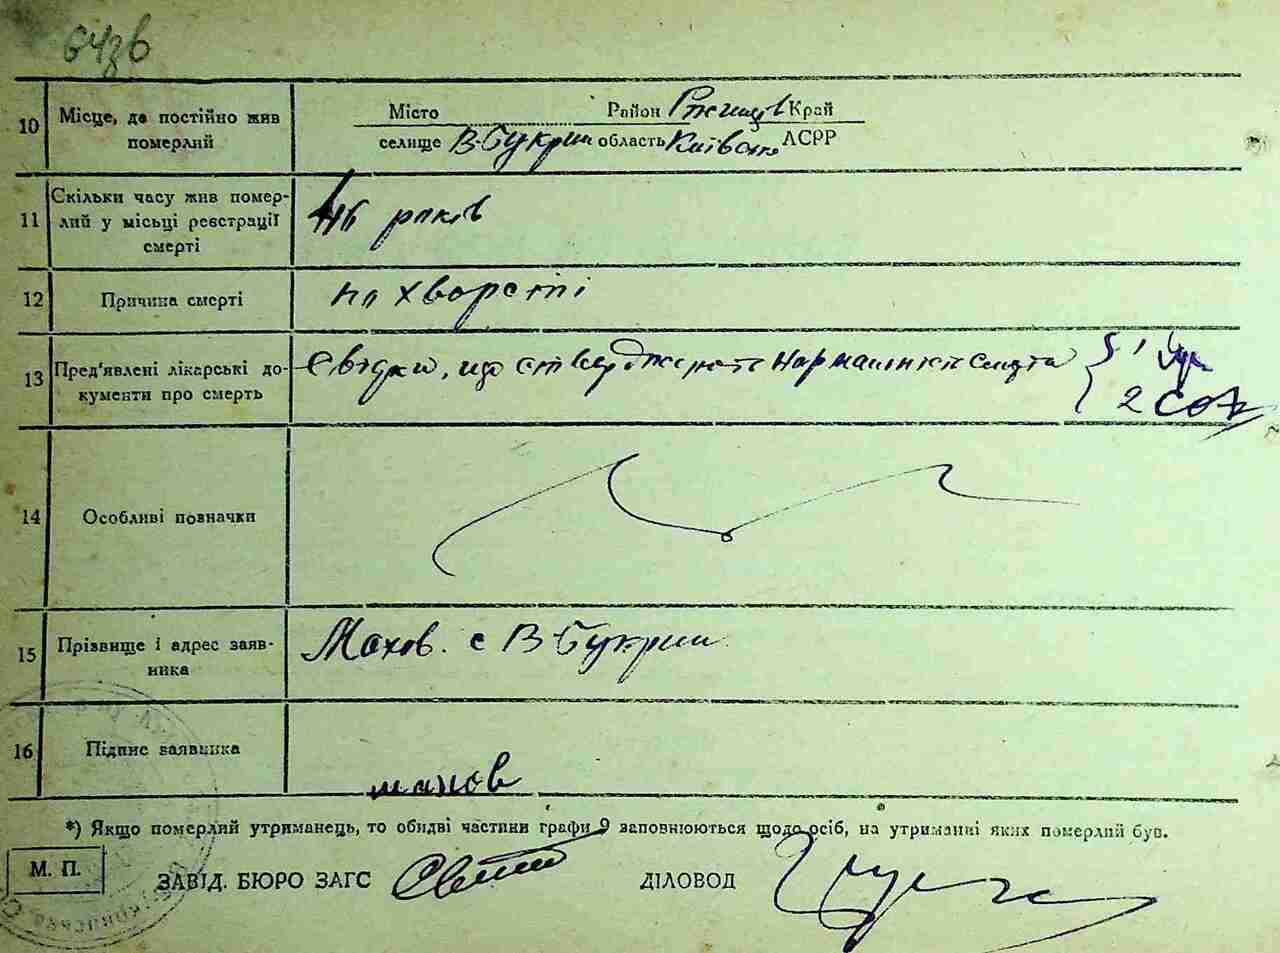 10 Місце, де постійно жив
померлий
Місто Район Ржищів Край
селище В-Букрин область Київськ АСРР
11 Скільки часу жив помер-
лий у місьці реєстрації
смерті
46 років
12 Причина смерті
по хворсті
13 Пред'явлені лікарські до-
кументи про смерть
Свідки, що стверджують нормальність смерти
1
2
14 Особливі позначки
15 Прізвище і адрес заяв-
ника
Махов. с В-Букрин
16 Підпис заявника
махов
*) Якщо померлий утриманець, то обидві частини графи 9 заповнюються щодо осіб, на утриманні яких померлий був.
М. П.
ЗАВІД. БЮРО ЗАГС ДІЛОВОД